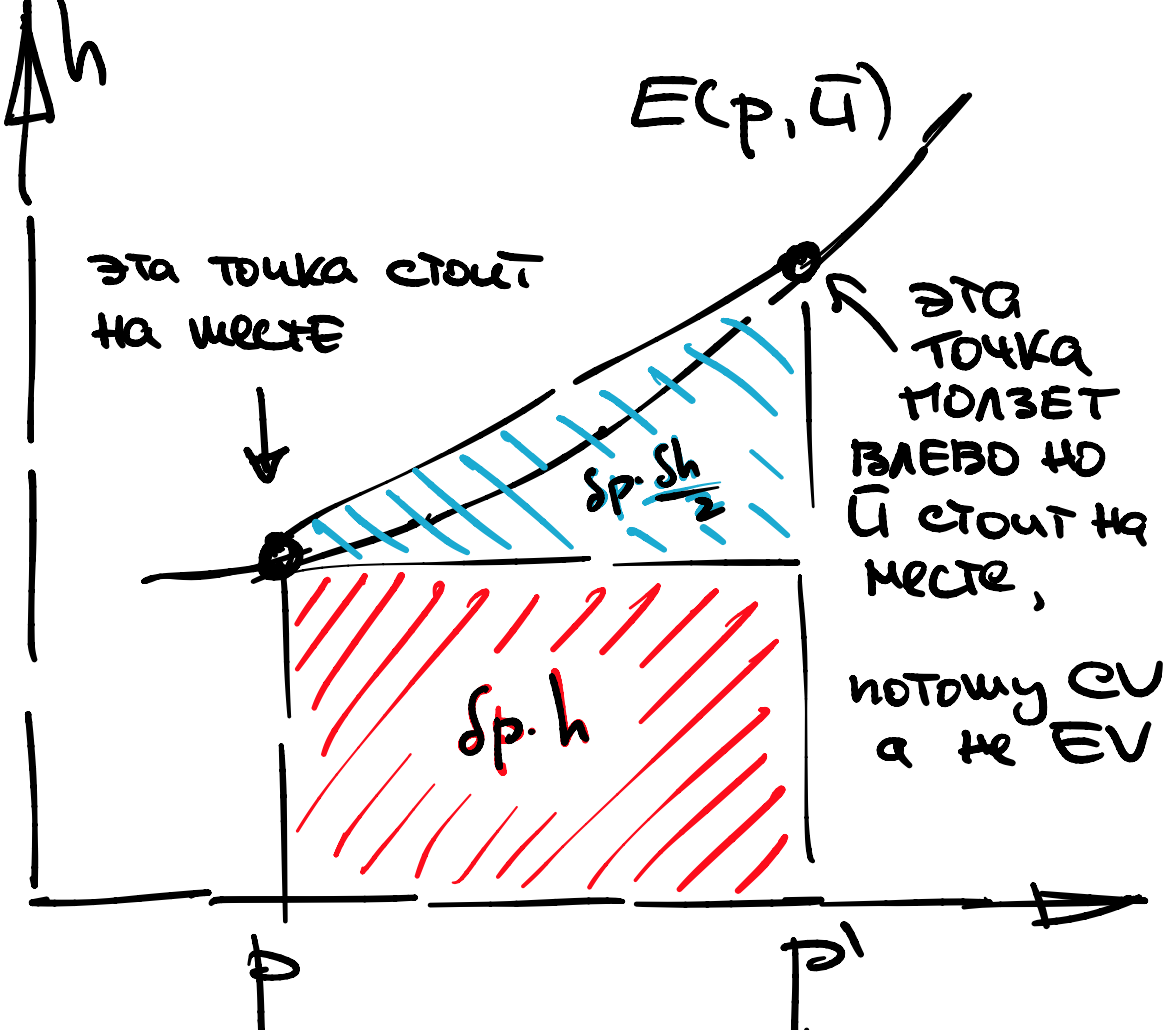 h
E(p, ū)
эта точка стоит
на месте
эта
точка
ползет
влево но
ū стоит на
месте,
потому CV
а не EV
δp · δh/2
δp · h
p
p'